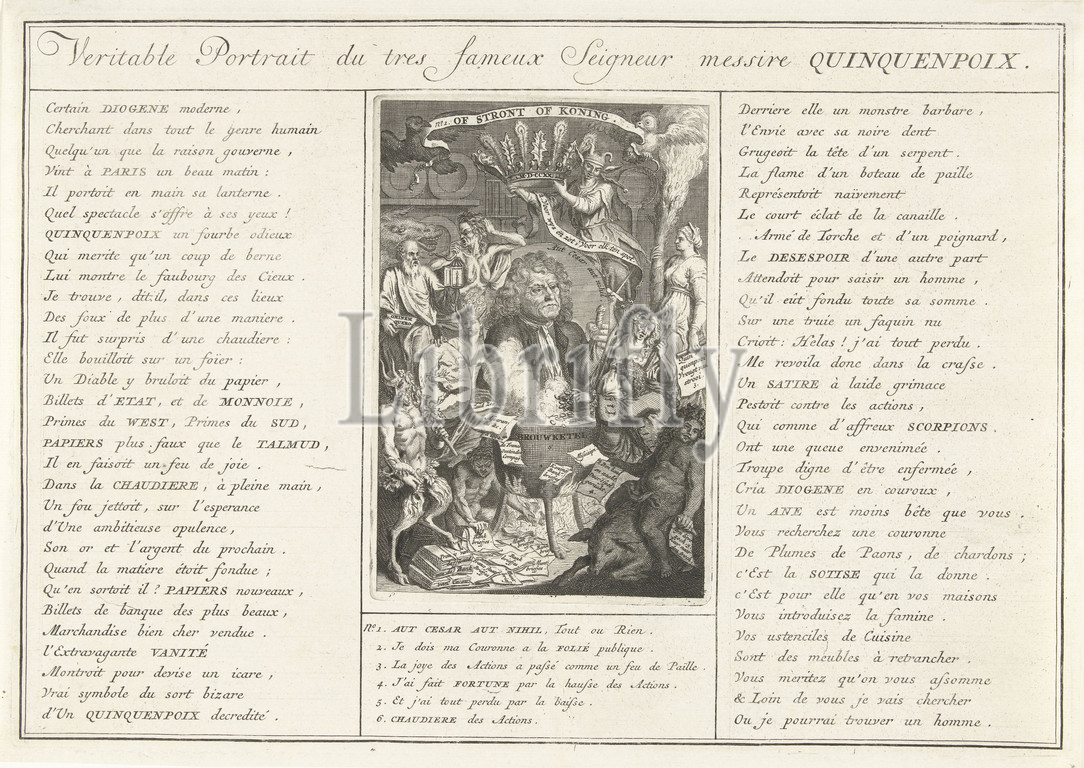 Veritable Portrait du tres fameux Seigneur messire QUINQUENPOIX.
Certain DIOGENE moderne,
Cherchant dans tout le genre humain
Quelqu'un que la raison gouverne,
Vint à PARIS un beau matin:
Il portoit en main sa lanterne.
Quel spectacle s'offre à ses yeux!
QUINQUENPOIX un fourbe odieux
Qui merite qu'un coup de berne
Lui montre le faubourg des Cieux.
Je trouve, dit:il, dans ces lieux
Des foux de plus d'une maniere.
Il fut surpris d'une chaudiere:
Elle bouilloit sur un foïer:
Un Diable y bruloit du papier,
Billets d'ETAT, et de MONNOIE,
Primes du WEST, Primes du SUD,
PAPIERS plus faux que le TALMUD,
Il en faisoit un feu de joie.
Dans la CHAUDIERE, à pleine main,
Un fou jettoit, sur l'esperance
d'Une ambitieuse opulence,
Son or et l'argent du prochain.
Quand la matiere étoit fondue;
Qu'en sortoit il? PAPIERS nouveaux,
Billets de banque des plus beaux,
Marchandise bien cher vendue.
l'Extravagante VANITÉ
Montroit pour devise un icare,
Vrai symbole du sort bizare
d'Un QUINQUENPOIX decredité.
No. 1. OF STRONT OF KONING.
MDCCXX
Aut Cesar aut nihil
BROUWKETEL
Librifly
No. 1. AUT CESAR AUT NIHIL, Tout ou Rien.
2. Je dois ma Couronne a la FOLIE publique.
3. La joye des Actions a passé comme un feu de Paille.
4. J'ai fait FORTUNE par la hausse des Actions.
5. Et j'ai tout perdu par la baisse.
6. CHAUDIERE des Actions.
Derriere elle un monstre barbare,
l'Envie avec sa noire dent
Grugeoit la tête d'un serpent.
La flame d'un boteau de paille
Représentoit naïvement
Le court éclat de la canaille.
Armé de Torche et d'un poignard,
Le DESESPOIR d'une autre part
Attendoit pour saisir un homme,
Qu'il eût fondu toute sa somme.
Sur une truie un faquin nu
Crioit: Helas! j'ai tout perdu.
Me revoila donc dans la crasse.
Un SATIRE à laide grimace
Pestoit contre les actions,
Qui comme d'affreux SCORPIONS.
Ont une queue envenimée.
Troupe digne d'être enfermée,
Cria DIOGENE en couroux,
Un ANE est moins bête que vous.
Vous recherchez une couronne
De Plumes de Paons, de chardons;
c'Est la SOTISE qui la donne.
c'Est pour elle qu'en vos maisons
Vous introduisez la famine.
Vos ustenciles de Cuisine
Sont des méubles à retrancher.
Vous meritez qu'on vous assomme
& Loin de vous je vais chercher
Ou je pourrai trouver un homme.